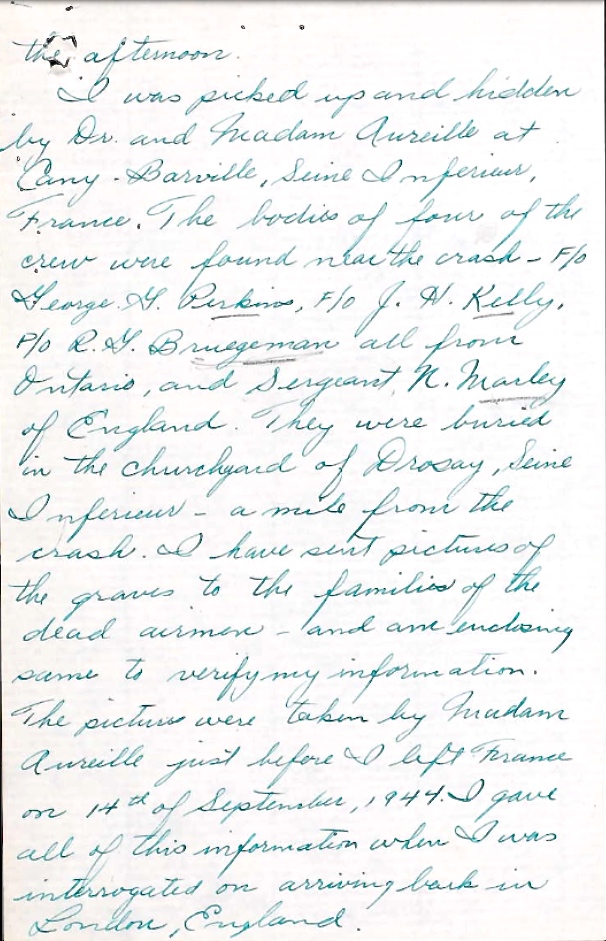 the afternoon.
I was picked up and hidden
by Dr. and Madam Aureille at
Cany-Barville, Seine Inferieur,
France. The bodies of four of the
crew were found near the crash - F/O
George G. Perkins, F/O J. H. Kelly,
P/O R. G. Bruegeman all from
Ontario, and Sergeant N. Marley
of England. They were buried
in the churchyard of Drosay, Seine
Inferieur - a mile from the
crash. I have sent pictures of
the graves to the families of the
dead airmen - and am enclosing
same to verify my information.
The pictures were taken by Madam
Aureille just before I left France
on 14th of September, 1944. I gave
all of this information when I was
interrogated on arriving back in
London, England.